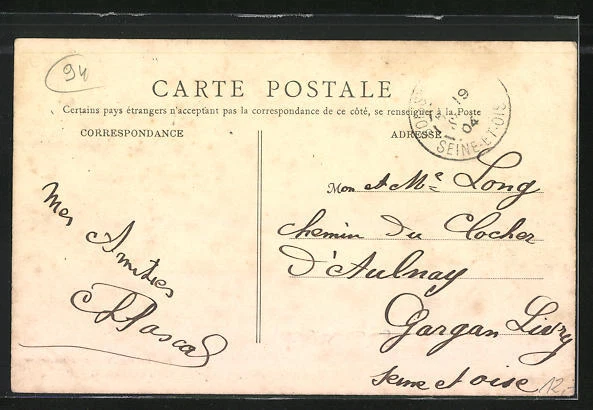 94
CARTE POSTALE
Certains pays étrangers n'acceptant pas la correspondance de ce côté, se renseigner à la Poste
CORRESPONDANCE
ADRESSE
19
04
SEINE-ET-OISE
Mon et Me Long
chemin du Clocher
D'Aulnay
Gargan Livry
Seine et oise
Mes
Amitiés
Pascal
12,-